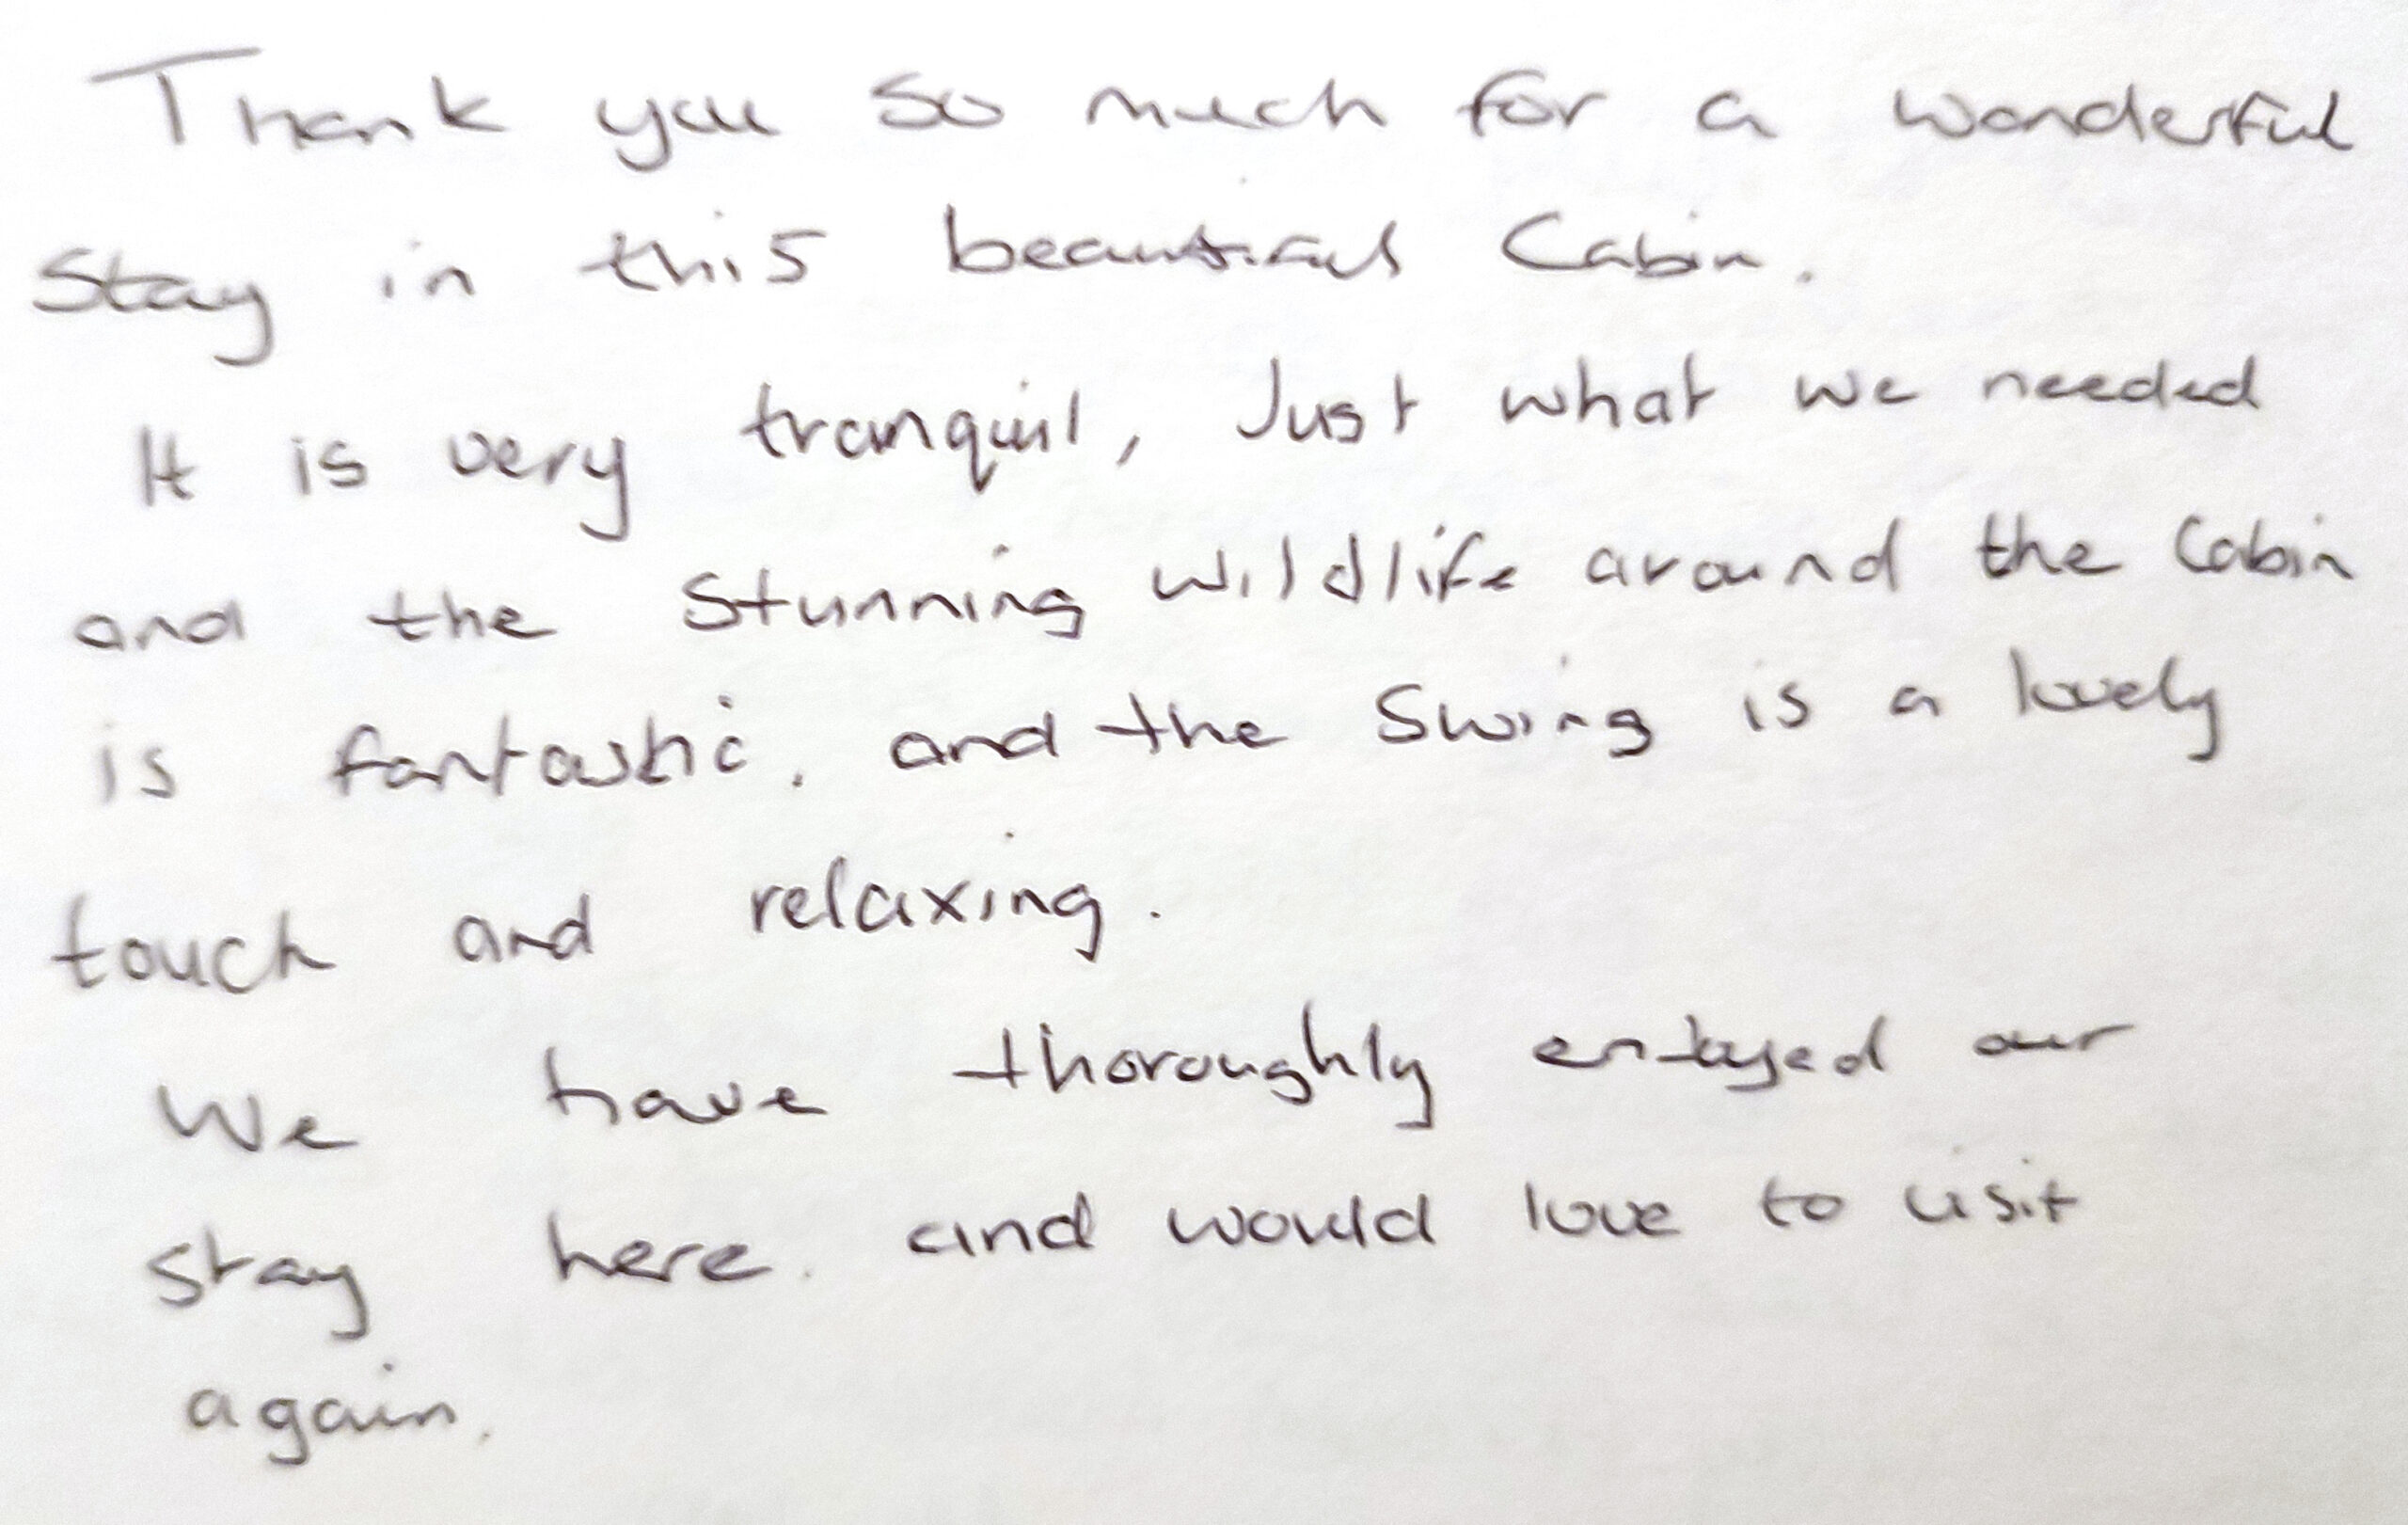 Thank you so much for a wonderful
Stay in this beautiful Cabin.
It is very tranquil, Just what we needed
and the Stunning wildlife around the Cabin
is fantastic. and the Swing is a lovely
touch and relaxing.
We have thoroughly enjoyed our
stay here. and would love to visit
again.